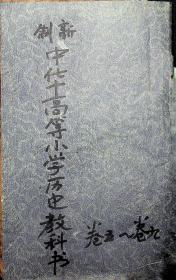 新制
中华高等小学历史教科书
卷五~卷九